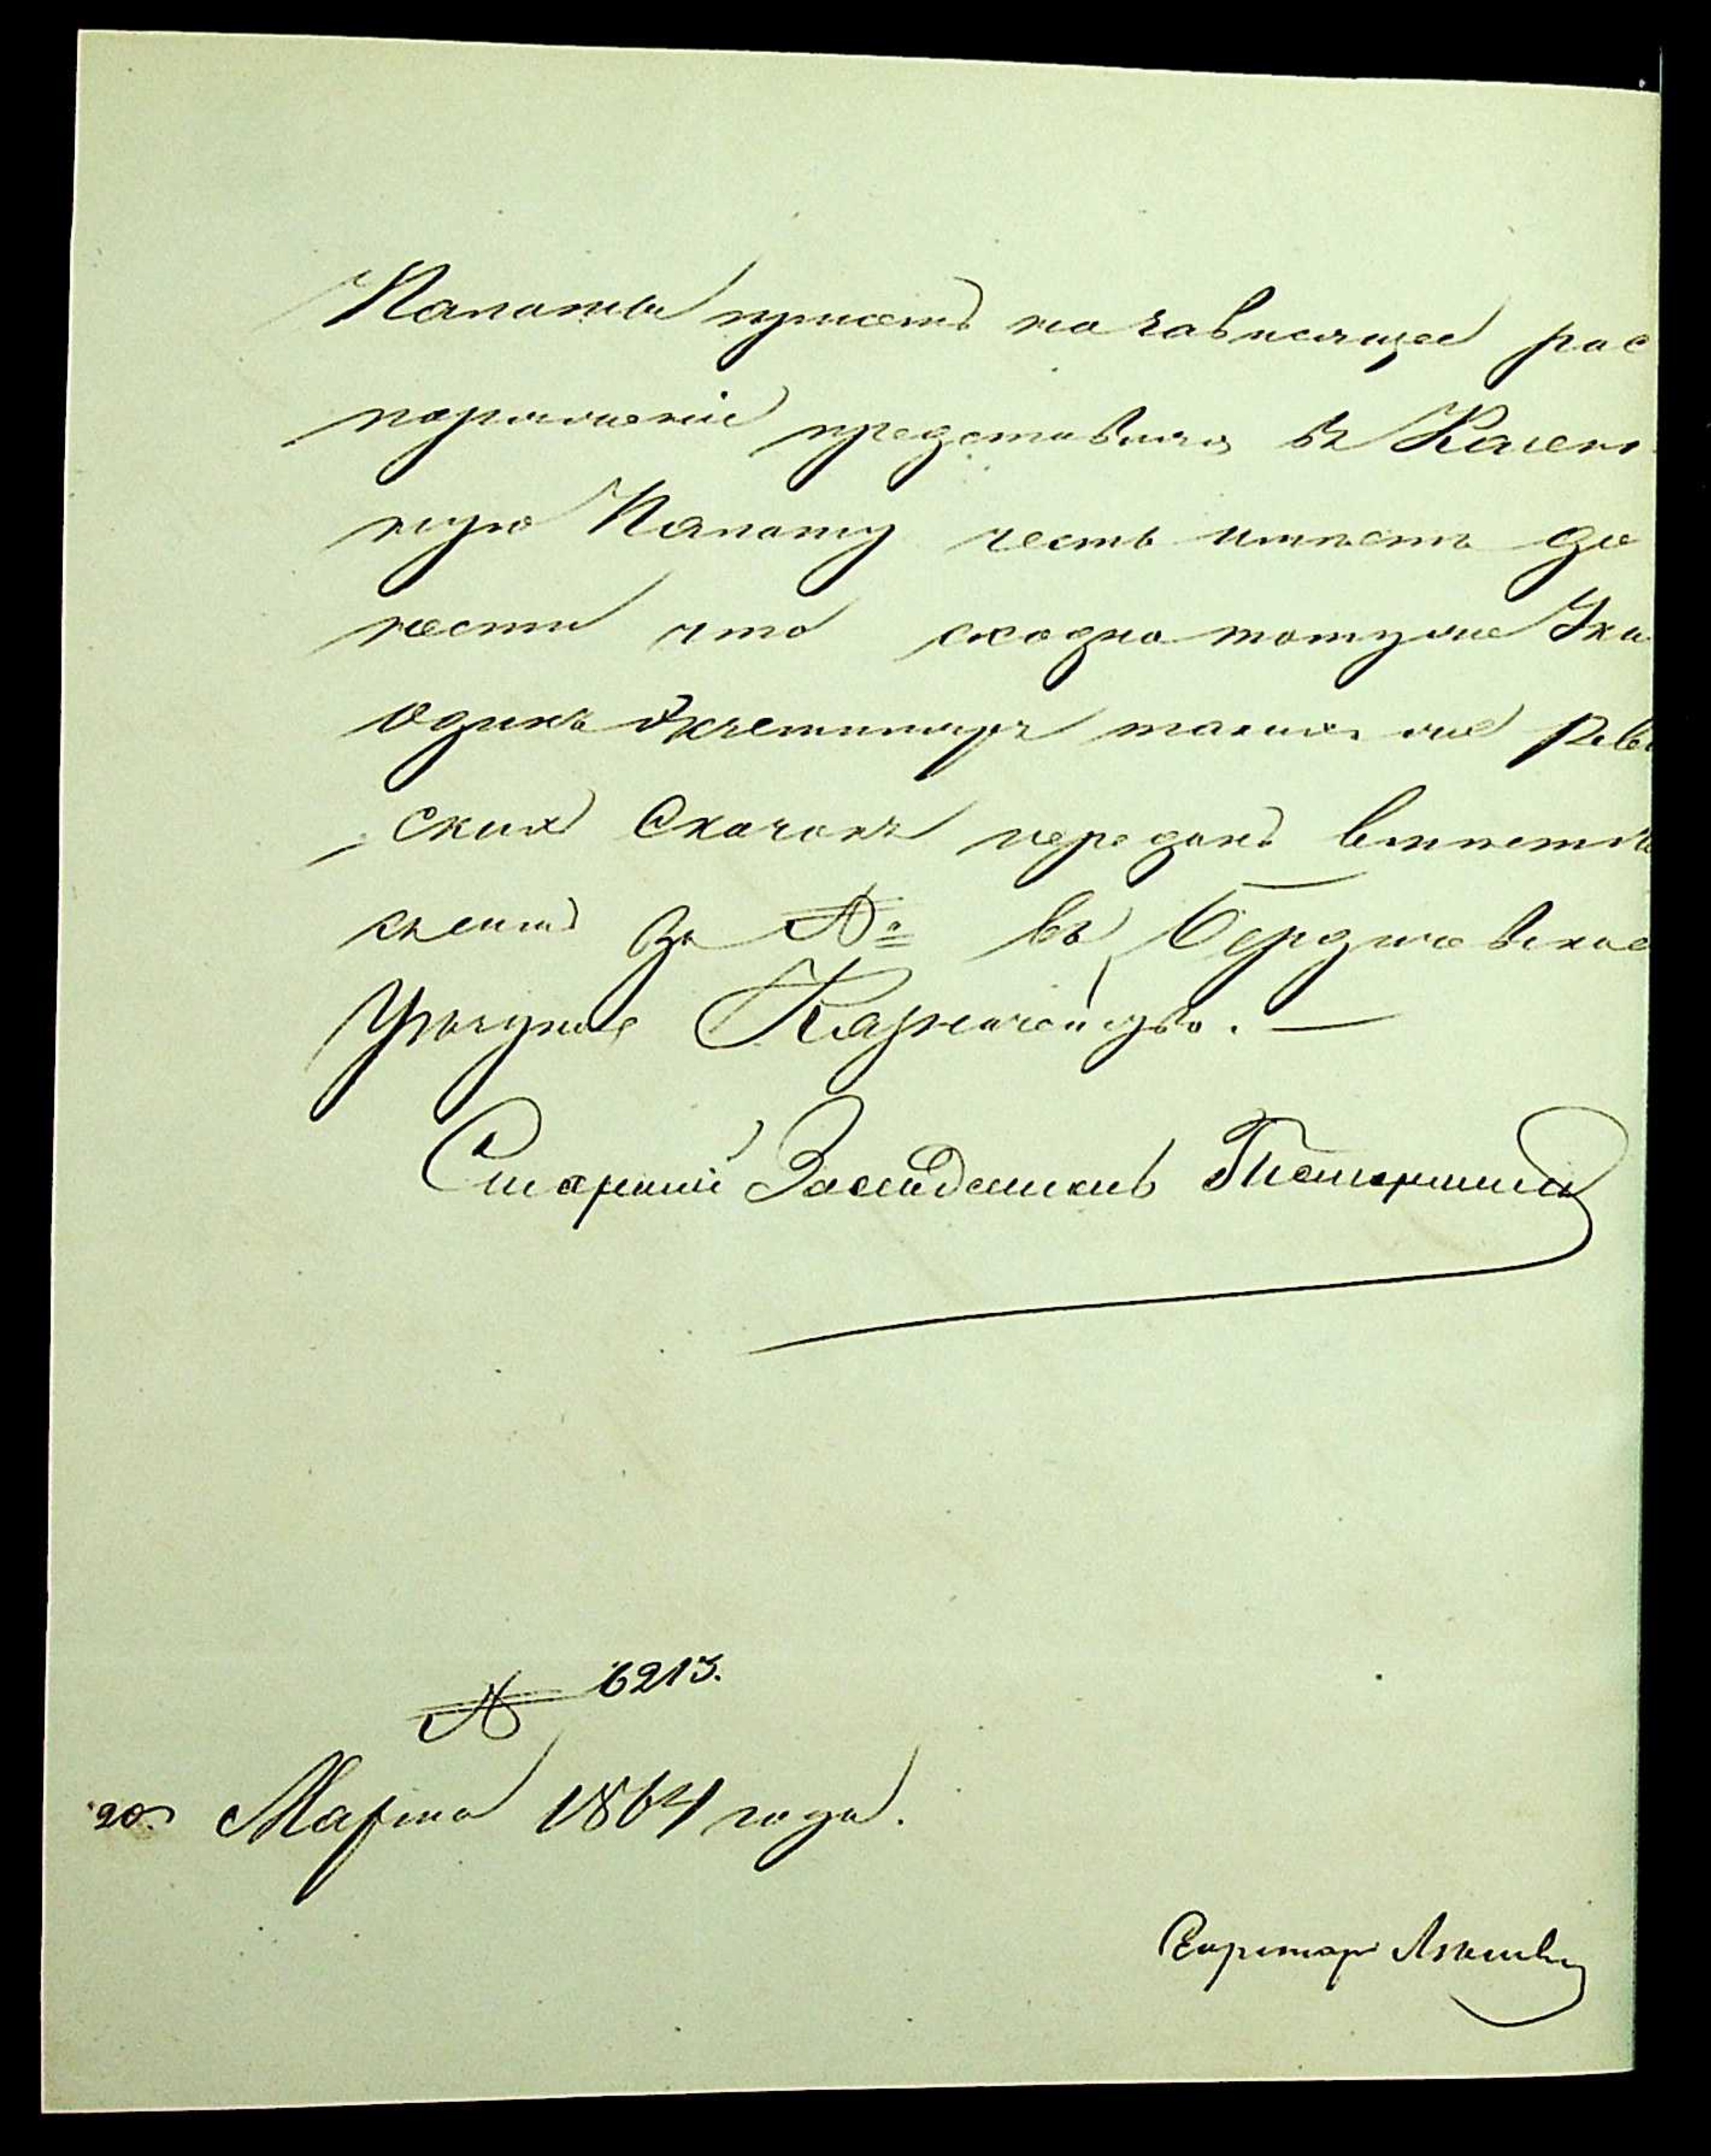 Палаты купно съ на зависящее рас
поряженіе представляя въ Казен
ную Палату честь имѣетъ до
нести что сходно тому же Ука
одинъ Экземпляръ таких же Реви
скихъ Сказокъ переданъ вмѣстѣ
симъ за № въ Бердичевское
Уѣздное Казначейство. —
Старший Засѣдатель
№ 6213.
20 Марта 1864 года.
Секретарь